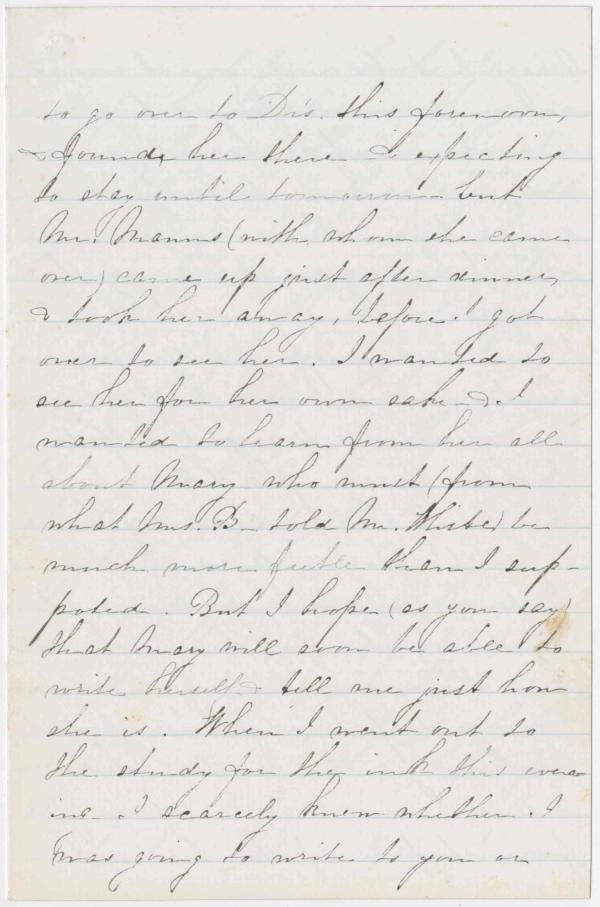 to go over to Di's. this forenoon,
& found, her there & expecting
to stay until tomorrow - but
Mr. Manns (with whom she came
over) came up just after dinner,
& took her away, before I got
over to see her. I wanted to
see her for her own sake & I
wanted to learn from her all
about Mary who must (from
what Mrs. B- told Mr. White) be
much more feeble than I sup-
posed. But I hope (as you say)
that Mary will soon be able to
write herself & tell me just how
she is. When I went out to
the study for the ink this even-
ing I scarcely knew whether I
was going to write to you or